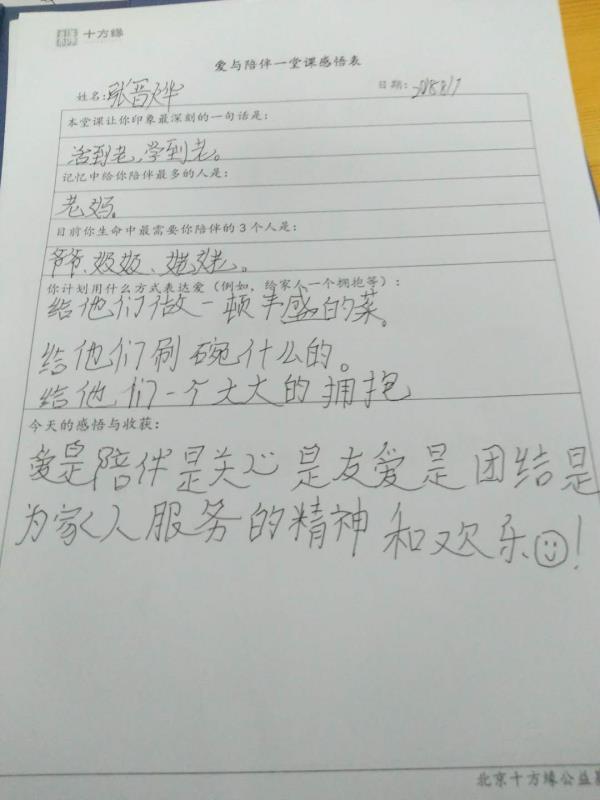 十方缘
爱与陪伴一堂课感悟表
姓名:张晋烨
日期:2018.8.17
本堂课让你印象最深刻的一句话是:
活到老,学到老。
记忆中给你陪伴最多的人是:
老妈。
目前你生命中最需要你陪伴的3个人是:
爷爷、奶奶、姥姥。
你计划用什么方式表达爱(例如,给家人一个拥抱等):
给他们做一顿丰盛的菜。
给他们刷碗什么的。
给他们一个大大的拥抱
今天的感悟与收获:
爱是陪伴是关心是友爱是团结是
为家人服务的精神和欢乐☺!
北京十方缘公益